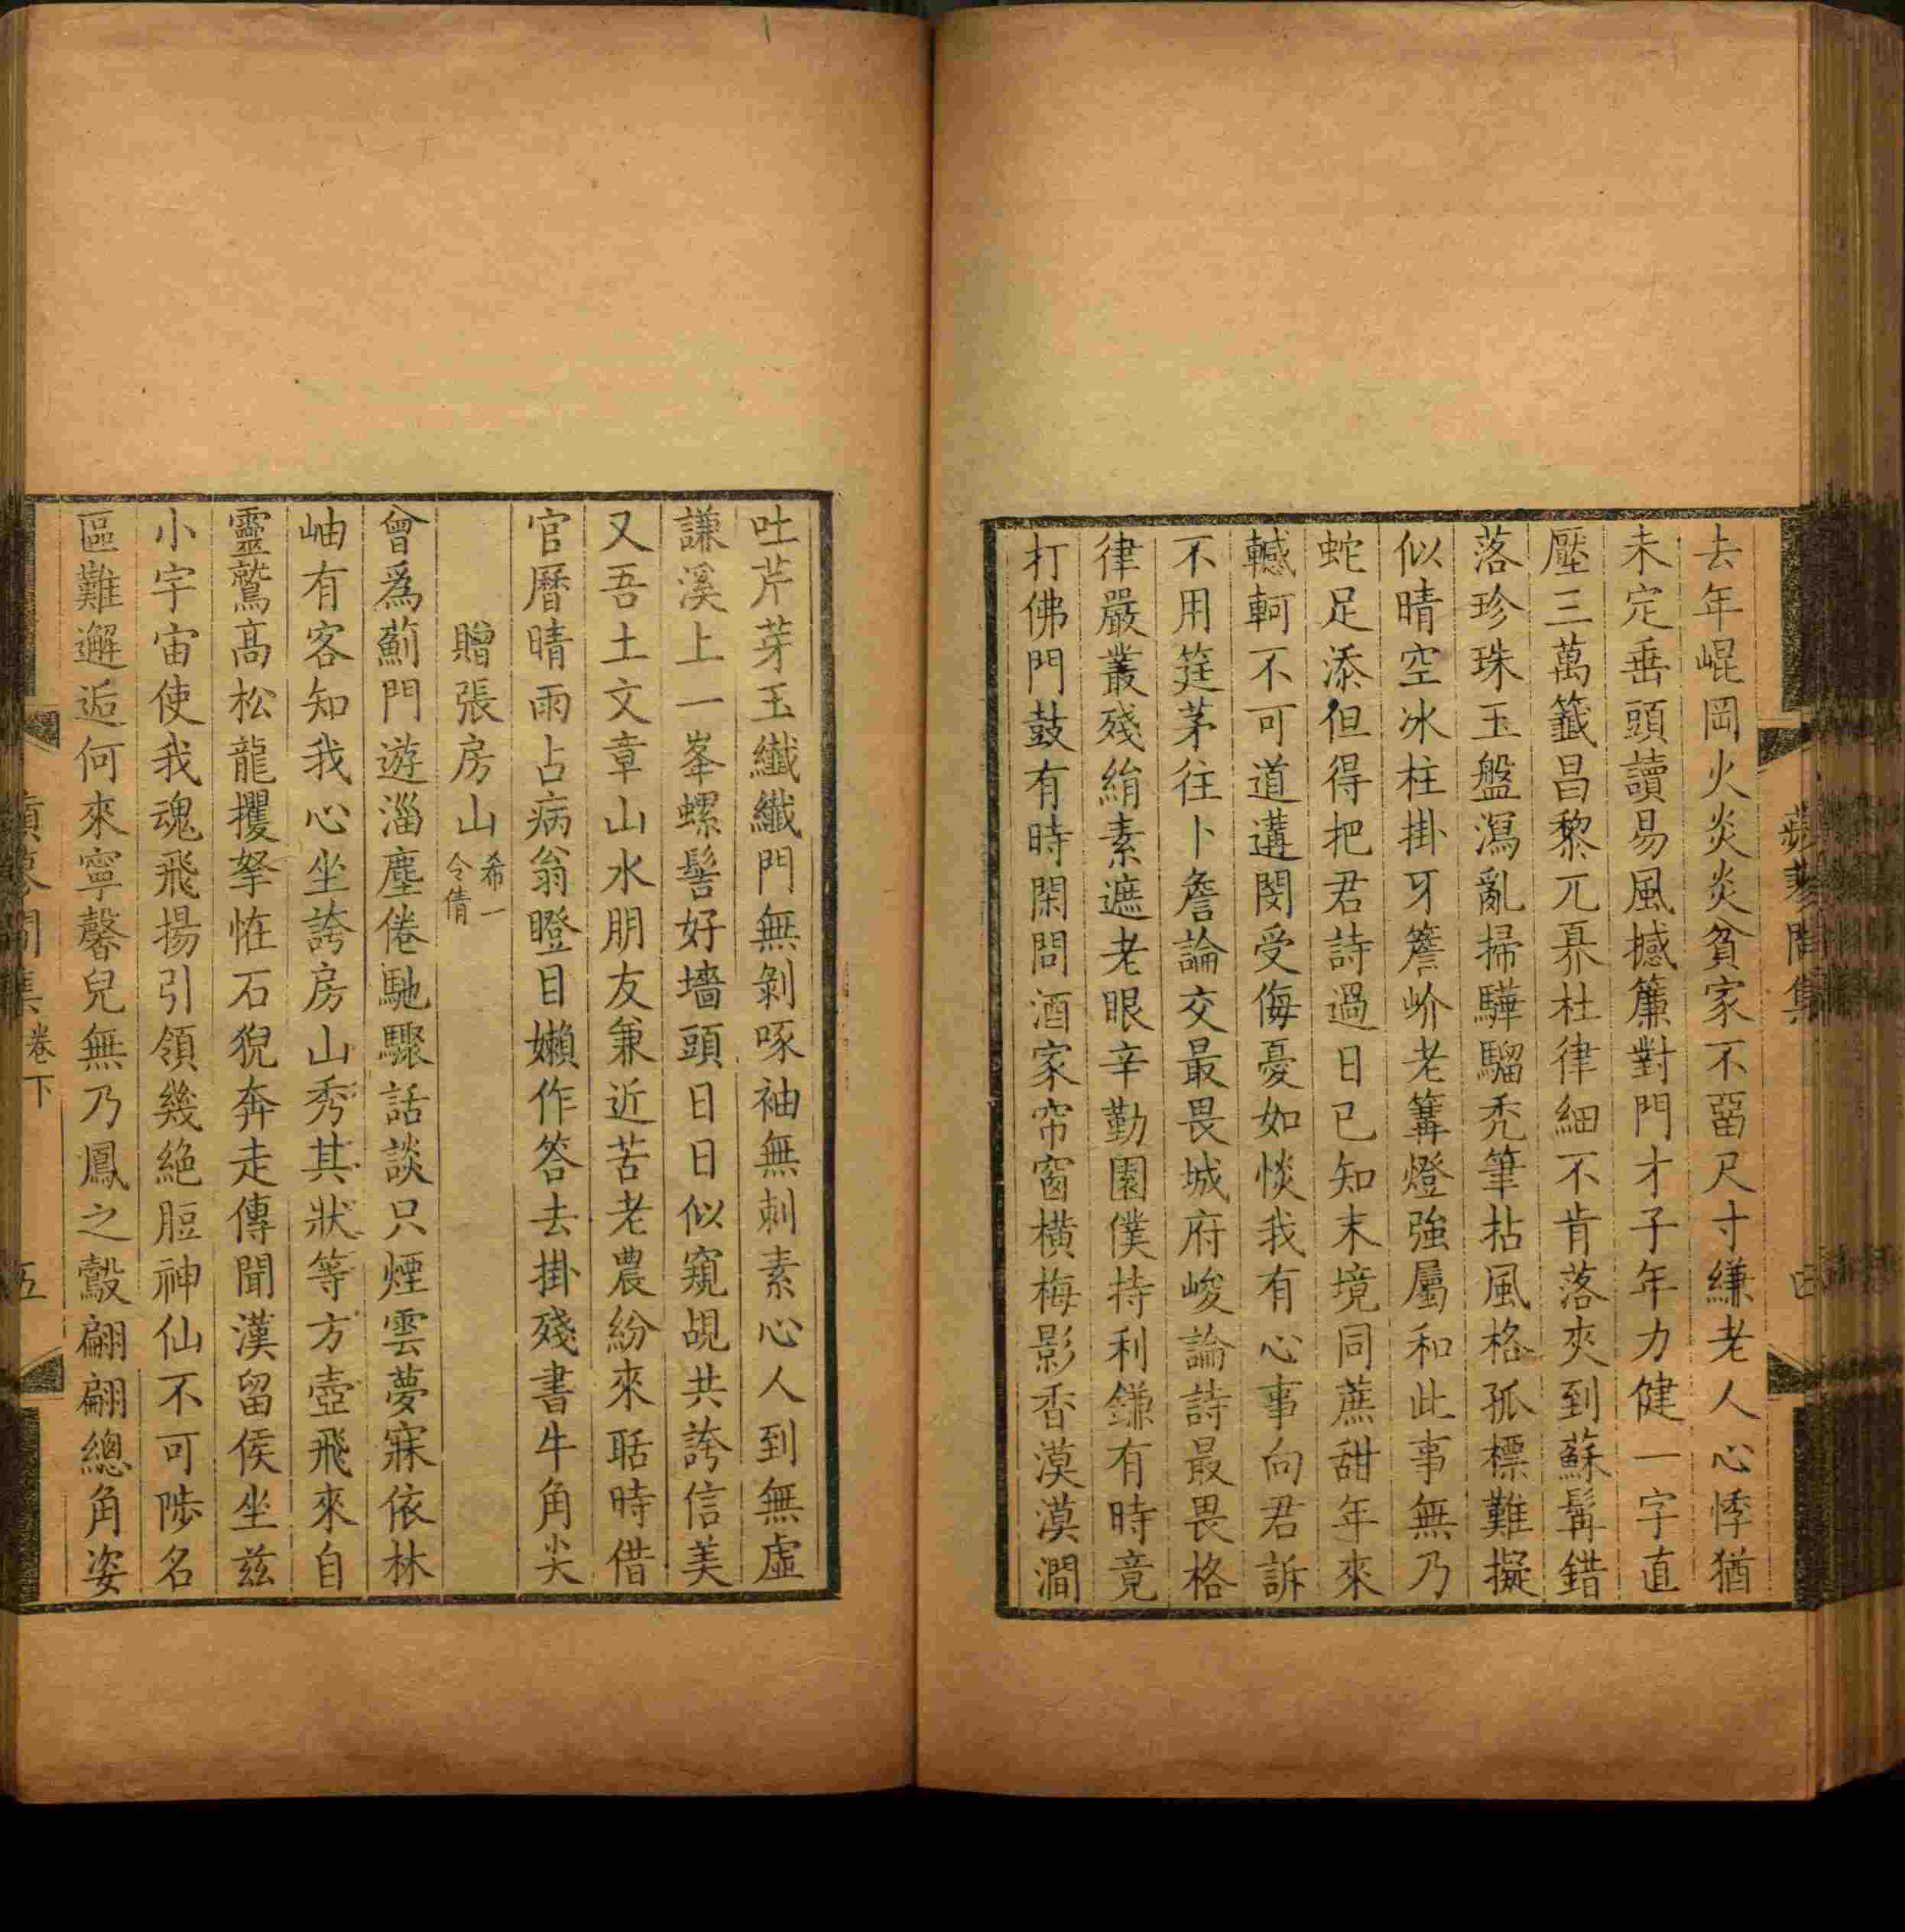 去年崐岡火炎炎貧家不留尺寸縑老人心悸猶
未定垂頭讀易風撼簾對門才子年力健一字直
壓三萬籤昌黎兀奡杜律細不肯落夾到蘇髯錯
落珍珠玉盤瀉亂掃驊騮禿筆拈風格孤標難擬
似晴空冰柱掛牙簷岕老篝燈強屬和此事無乃
蛇足添但得把君詩過日已知末境同蔗甜年來
轗軻不可道遘閔受侮憂如惔我有心事向君訴
不用筳茅往卜詹論交最畏城府峻論詩最畏格
律嚴叢殘絹素遮老眼辛勤園僕持利鎌有時竟
打佛門鼓有時閑問酒家帘窗橫梅影香漠漠澗
吐芹芽玉纖纖門無剝啄袖無刺素心人到無虛
謙溪上一峯螺髻好墻頭日日似窺覘共誇信美
又吾土文章山水朋友兼近苦老農紛來聒時借
官曆晴雨占病翁瞪目嬾作答去掛殘書牛角尖
贈張房山希一令倩
曾爲薊門遊淄塵倦馳驟話談只煙雲夢寐依林
岫有客知我心坐誇房山秀其狀等方壺飛來自
靈鷲高松龍攫拏恠石猊奔走傳聞漢留侯坐兹
小宇宙使我魂飛揚引領幾絕脰神仙不可陟名
區難邂逅何來寧馨兒無乃鳳之鷇翩翩總角姿
卷下
五